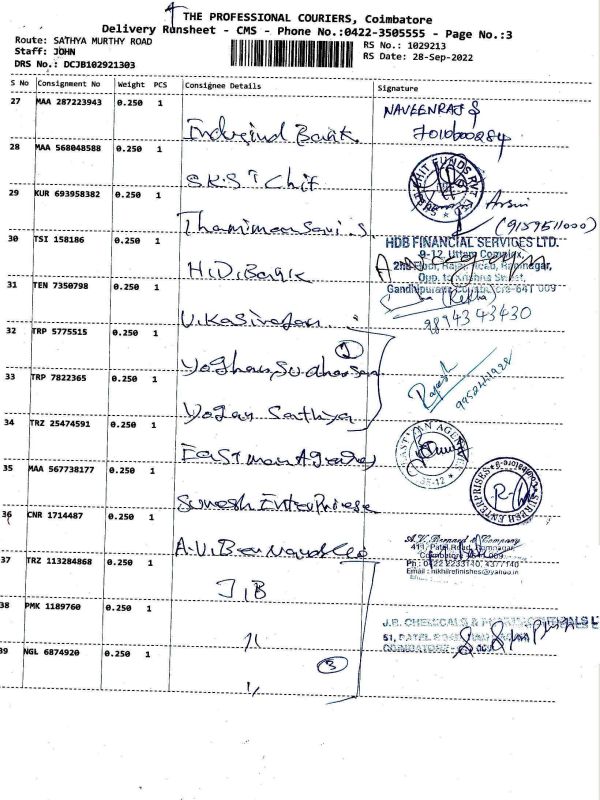 THE PROFESSIONAL COURIERS, Coimbatore
Delivery Runsheet - CMS - Phone No.:0422-3505555 - Page No.:3
Route: SATHYA MURTHY ROAD
RS No.: 1029213
Staff: JOHN
RS Date: 28-Sep-2022
DRS No.: DCJB102921303
S No Consignment No Weight PCS Consignee Details Signature
27 MAA 287223943 0.250 1 Indusind Bank NAVEENRAJ
7010600284
28 MAA 568048588 0.250 1 S.K.S.T Chit
CHIT FUNDS PVT LTD
29 KUR 693958382 0.250 1
(9159511000)
30 TSI 158186 0.250 1 H.D. Bank
HDB FINANCIAL SERVICES LTD.
9-12, Uttam Complex,
2nd Floor, Ramnagar,
Opp. to Krishna Sweet,
Gandhipuram, 641 009
31 TEN 7350798 0.250 1 V. Kasirajan
(Rekha)
9894343430
32 TRP 5775515 0.250 1
33 TRP 7822365 0.250 1 Yogan Sathya
Rajesh
9952441928
34 TRZ 25474591 0.250 1 Eastman Agency
EASTMAN AGENCIES
35 MAA 567738177 0.250 1 Suresh Enterprises
SURESH ENTERPRISES
36 CNR 1714487 0.250 1 A.V. Bernard & Co
A.V. Bernard & Company
411, Patel Road, Ramnagar,
Coimbatore - 641 009.
Ph : 0422 2233140, 4377140
Email : nikhilrefinishes@yahoo.in
37 TRZ 113284868 0.250 1 J.B
38 PMK 1189760 0.250 1 "
J.B. CHEMICALS & PHARMACEUTICALS L
51, PATEL ROAD, RAM NAGAR
COIMBATORE
39 NGL 6874920 0.250 1 "
3